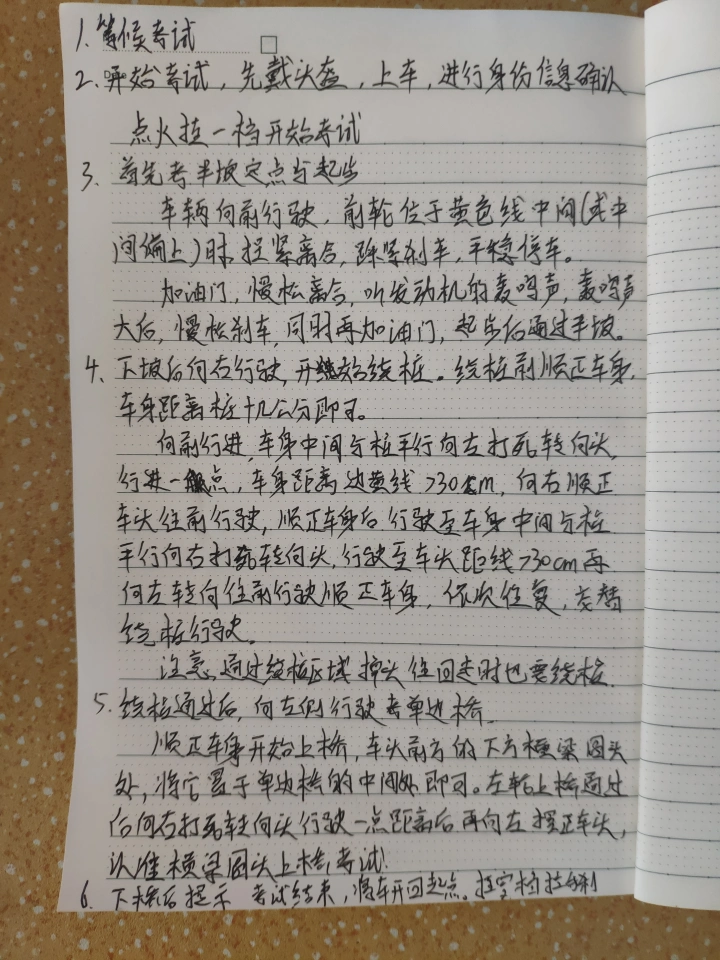 1. 等候考试
2. 开始考试，先戴头盔，上车，进行身份信息确认
点火挂一档开始考试
3、首先考半坡定点与起步
车辆向前行驶，前轮位于黄色线中间(或中
间偏上)时捏紧离合，踩紧刹车，平稳停车。
加油门，慢松离合，听发动机的轰鸣声，轰鸣声
大后，慢松刹车，同时再加油门，起步后通过半坡。
4、下坡后向右行驶，开始绕桩。绕桩前顺正车身，
车身距离桩十几公分即可。
向前行进，车身中间与桩平行向左打死转向头，
行进一点，车身距离边黄线>30cm，向右顺正
车头往前行驶，顺正车身后行驶至车身中间与桩
平行向右打死转向头，行驶至车头距线>30cm再
向左转向往前行驶顺正车身，依次往复，交替
绕桩行驶。
注意，通过绕桩区域掉头往回走时也要绕桩.
5、绕桩通过后，向左侧行驶考单边桥.
顺正车身开始上桥，车头前方的下方横梁圆头
处，将它置于单边桥的中间处即可。左轮上桥通过
后向右打死转向头行驶一点距离后再向左摆正车头，
认准横梁圆头上桥考试.
6、下桥后提示 考试结束，将车开回起点。挂空档拉手刹